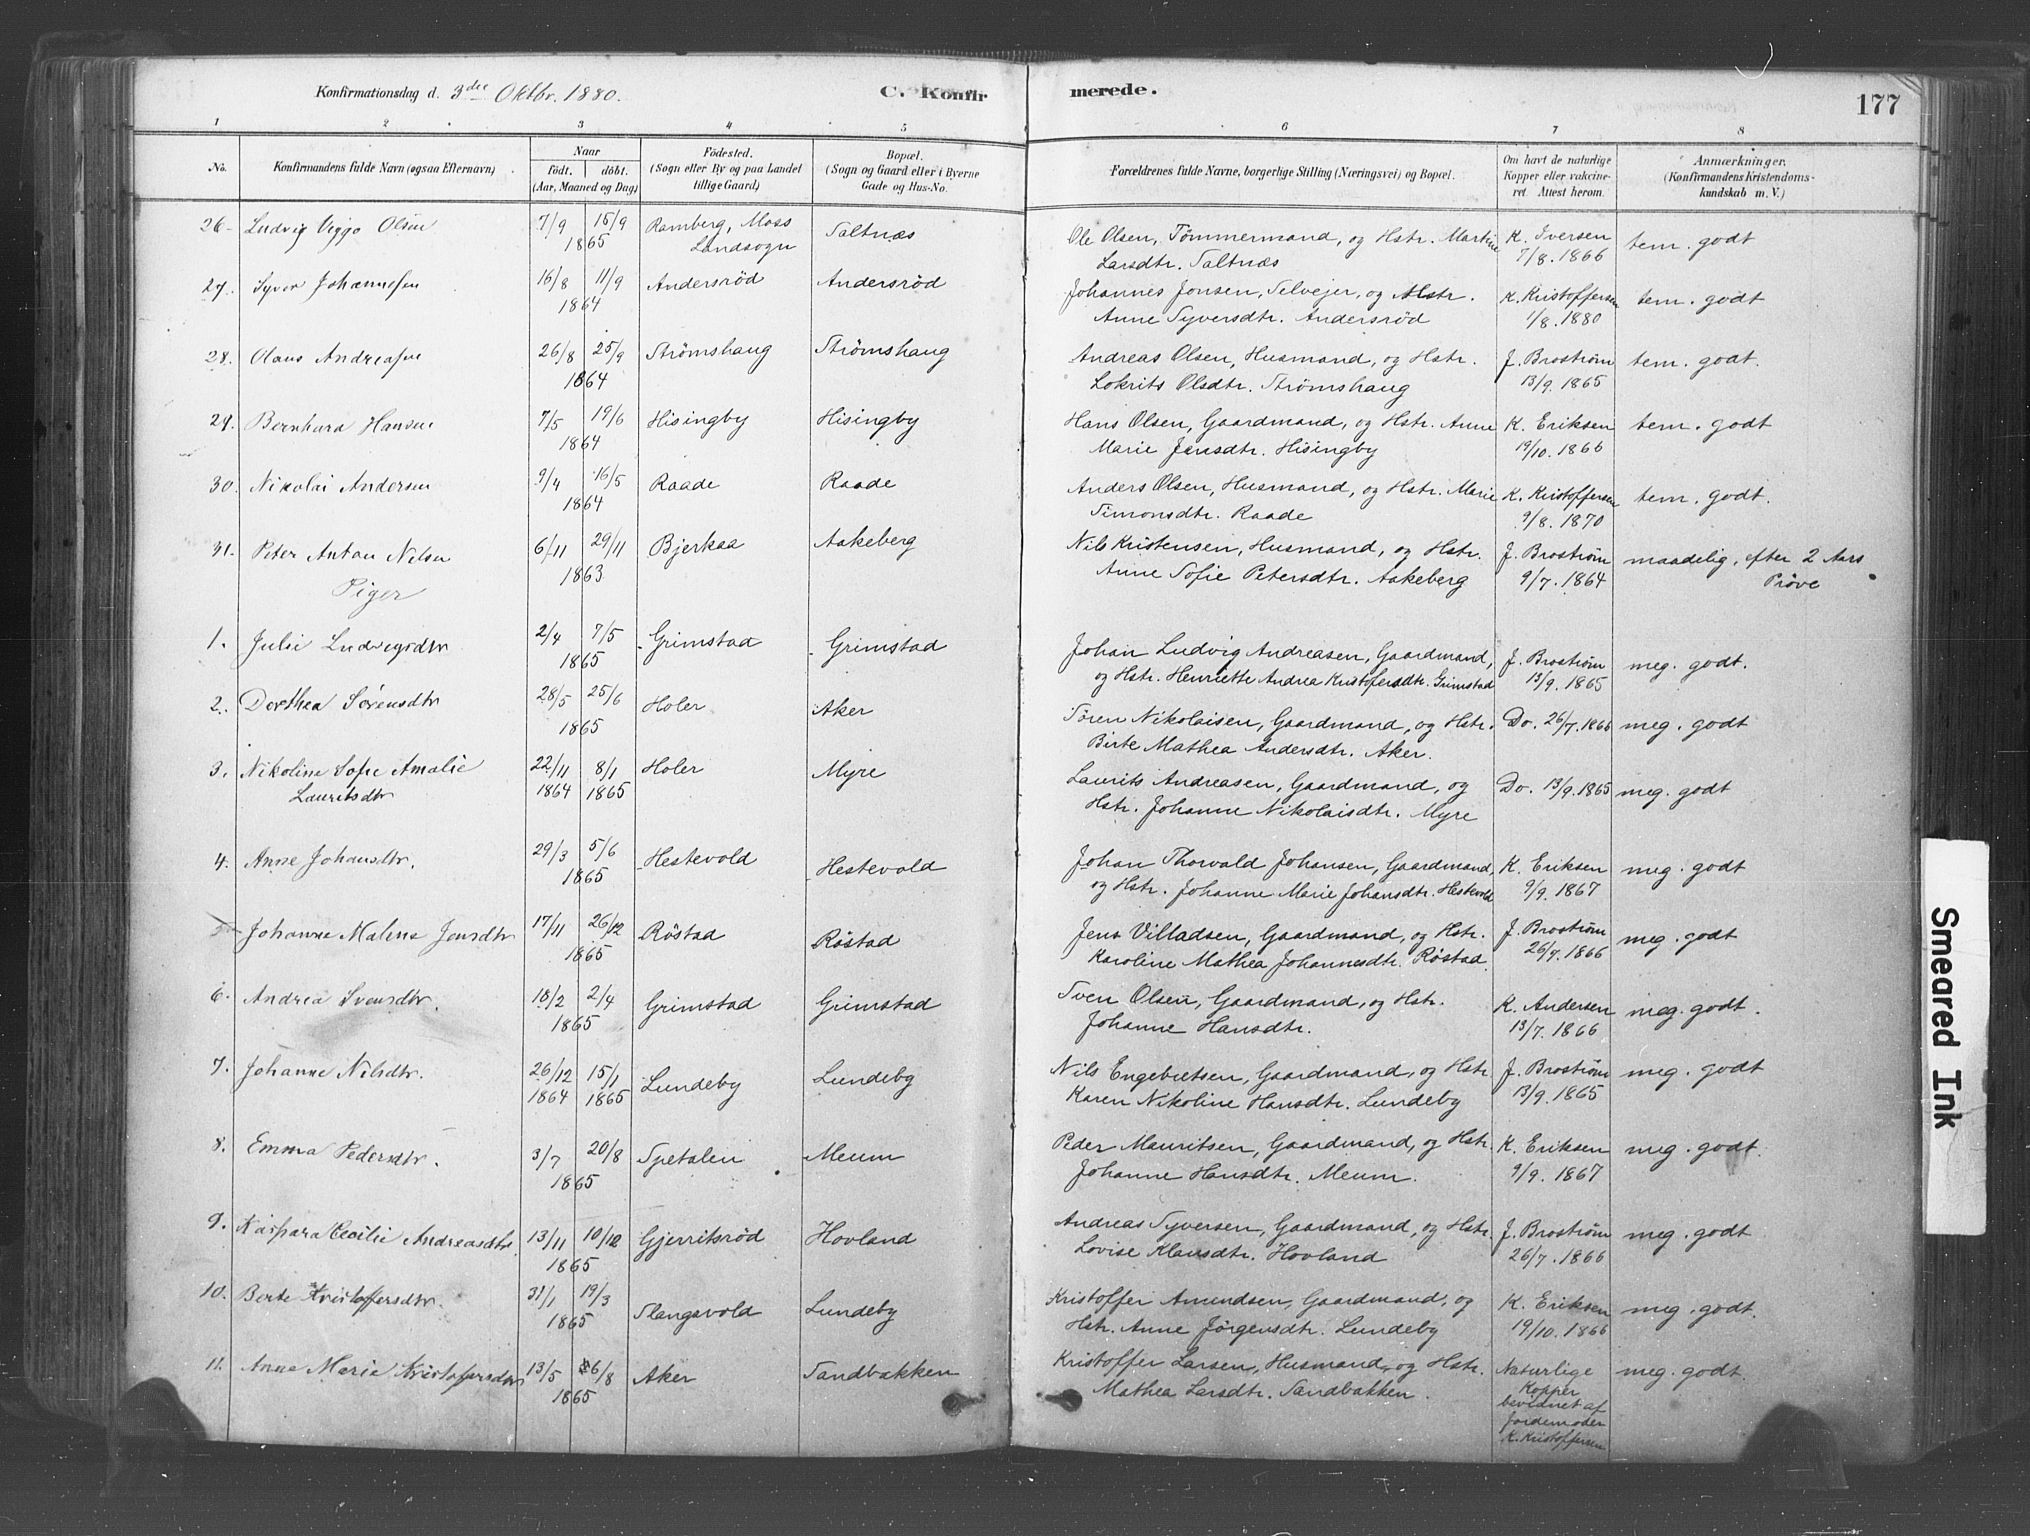 Konfirmationsdag d. 3die Oktbr. 1880. C. Konfirmerede. 177
1 2 3 4 5 6 7 8
No. Konfirmandens fulde Navn (ogsaa Efternavn) Naar født, døbt. (Aar, Maaned og Dag) Födested. (Sogn eller By og paa Landet tillige Gaard) Bopæl. (Sogn og Gaard eller i Byerne Gade og Hus-No. Forældrenes fulde Navne, borgerlige Stilling (Næringsvei) og Bopæl. Om havt de naturlige Kopper eller vakcineret. Attest herom. Anmærkninger. (Konfirmandens Kristendomskundskab m. V.)
26. Ludvig Viggo Olsen 7/9 15/9 1865 Ramberg, Moss Landsogn Saltnæs Ole Olsen, Tömmermand, og Hstr. Martine Larsdtr. Saltnæs K. Iversen 7/8. 1866 tem. godt
27. Syver Johannesen 16/8 11/9 1864 Andersröd Andersröd Johannes Jonsen, Selvejer, og Hstr. Anne Syversdtr. Andersröd K. Kristoffersen 1/8. 1880 tem. godt
28. Olaus Andreasen 26/8 25/9 1864 Strömshaug Strömshaug Andreas Olsen, Husmand, og Hstr. Lokrits Olsdtr. Strömshaug J. Broström 13/9. 1865 tem. godt.
29. Bernhard Hansen 7/5 19/6 1864 Hisingby Hisingby Hans Olsen, Gaardmand, og Hstr. Anne Marie Jensdtr. Hisingby K. Eriksen 19/10. 1866 tem. godt
30. Nikolai Andersen 9/4 16/5 1864 Raade Raade Anders Olsen, Husmand, og Hstr. Marie Simonsdtr. Raade K. Kristoffersen 9/8. 1870 tem. godt.
31. Peter Anton Nilsen 6/11 29/11 1863 Bjerkaa Aakeberg Nils Kristensen, Husmand, og Hstr. Anne Sofie Petersdtr. Aakeberg J. Broström 9/7. 1864 maadelig, efter 2 Aars Pröve
Piger
1. Julie Ludvigsdtr 2/4 7/5 1865 Grimstad Grimstad Johan Ludvig Andreasen, Gaardmand, og Hstr. Henriette Andrea Kristofersdtr. Grimstad J. Broström 13/9. 1865 meg. godt.
2. Dorthea Sörensdtr 28/5 25/6 1865 Holer Aker Sören Nikolaisen, Gaardmand, og Hstr. Birte Mathea Andersdtr. Aker. Do. 26/7. 1866 meg. godt
3. Nikoline Sofie Amalie Lauritsdtr 22/11 1864 8/1 1865 Holer Myre Laurits Andreasen, Gaardmand, og Hstr. Johanne Nikolaisdtr. Myre Do. 13/9. 1865 meg. godt
4. Anne Johansdtr. 29/3 5/6 1865 Hestevold Hestevold Johan Thorvald Johansen, Gaardmand, og Hstr. Johanne Marie Johansdtr. Hestevold K. Eriksen 9/9. 1867 meg. godt
Johanne Malene Jensdtr 17/11 26/12 1865 Röstad Röstad Jens Villadsen, Gaardmand, og Hstr. Karoline Mathea Johannesdtr. Röstad. J. Broström 26/7. 1866 meg. godt
6. Andrea Svensdtr. 18/2 2/4 1865 Grimstad Grimstad Sven Olsen, Gaardmand, og Hstr. Johanne Hansdtr. K. Andersen 13/7. 1866 meg. godt.
7. Johanne Nilsdtr. 26/12 1864 15/1 1865 Lundeby Lundeby Nils Engebretsen, Gaardmand, og Hstr Karen Nikoline Hansdtr. Lundeby J. Broström 13/9. 1865 meg. godt
8. Emma Pedersdtr. 3/7 20/8 1865 Spetalen Meum Peder Mauritsen, Gaardmand, og Hstr. Johanne Hansdtr. Meum. K. Eriksen 9/9. 1867 meg. godt.
9. Kaspara Cecilie Andreasdtr. 13/11 10/12 1865 Gjerritsröd Hovland Andreas Syversen, Gaardmand, og Hstr. Lovise Klausdtr. Hovland J. Broström 26/7. 1866 meg. godt
10. Berte Kristoffersdtr. 31/1 19/3 1865 Slangsvold Lundeby Kristoffer Amundsen, Gaardmand, og Hstr. Anne Jörgensdtr. Lundeby K. Eriksen 19/10. 1866 meg. godt.
11. Anne Marie Kristofersdtr 13/5 6/8 1865 Aker Sandbakken Kristoffer Larsen, Husmand, og Hstr. Mathea Larsdtr. Sandbakken. Naturlige Kopper bevidnet af Jordemoder K. Kristoffersen meg. godt.
Smeared Ink